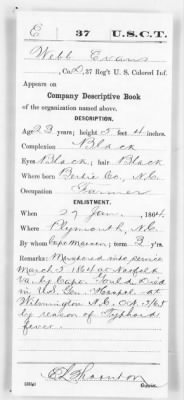 E 37 U.S.C.T.
Webb Evans
, Co. D, 37 Reg't U. S. Colored Inf.
Appears on
Company Descriptive Book
of the organization named above.
DESCRIPTION.
Age 23 years; height 5 feet 4 inches.
Complexion Black
Eyes Black; hair Black
Where born Bertie Co., N.C.
Occupation Farmer
ENLISTMENT.
When 27 Jan., 1864.
Where Plymouth, N.C.
By whom Capt. ; term 3 y'rs.
Remarks: Mustered into service
March 3 1864 at Norfolk
Va. by Capt. Gould. Died
in U.S. Gen. Hospl. at
Wilmington N.C. 3/65
by reason of Typhoid
fever.
Copyist.